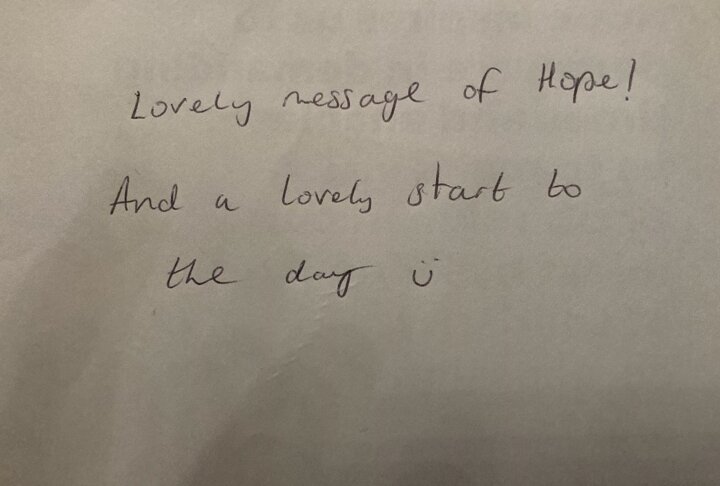 Lovely message of Hope!
And a lovely start to
the day ü